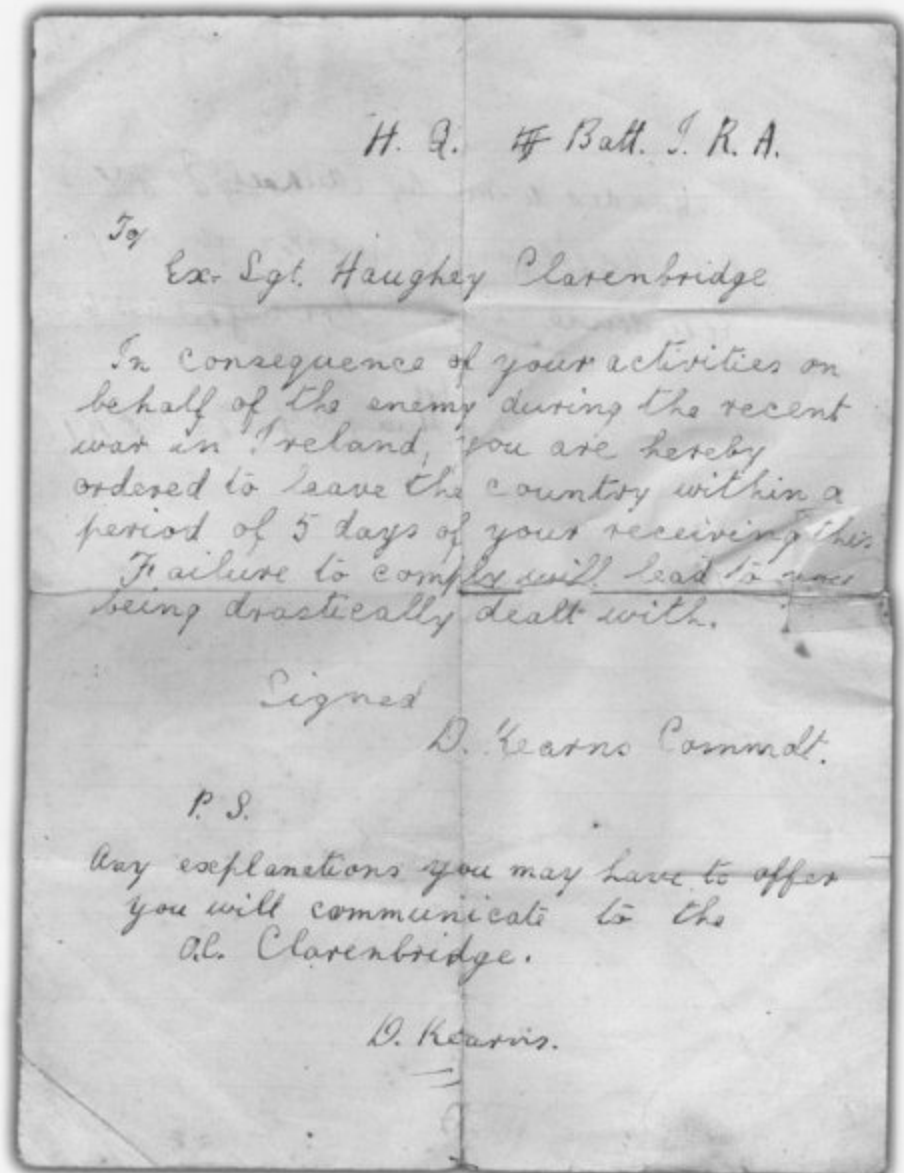 H. Q. Batt. I. R. A.
To
Ex-Sgt. Haughey Clarenbridge
In consequence of your activities on
behalf of the enemy during the recent
war in Ireland, you are hereby
ordered to leave the country within a
period of 5 days of your receiving this
Failure to comply will lead to your
being drastically dealt with.
Signed
D. Kearns Commdt.
P. S.
Any explanations you may have to offer
you will communicate to the
O.C. Clarenbridge.
D. Kearns.